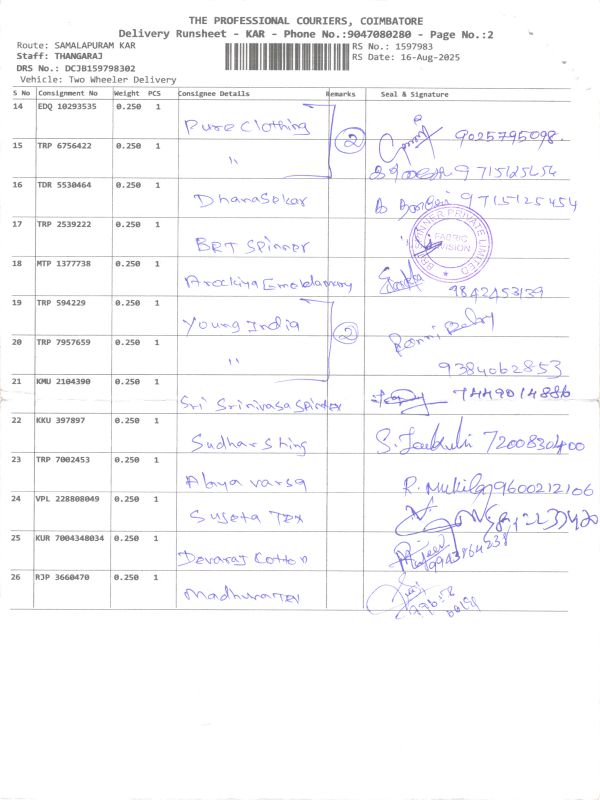 THE PROFESSIONAL COURIERS, COIMBATORE
Delivery Runsheet - KAR - Phone No.:9047080280 - Page No.:2
Route: SAMALAPURAM KAR RS No.: 1597983
Staff: THANGARAJ RS Date: 16-Aug-2025
DRS No.: DCJB159798302
Vehicle: Two Wheeler Delivery
S No Consignment No Weight PCS Consignee Details Remarks Seal & Signature
14 EDQ 10293535 0.250 1 Pure Clothing 2 9025795098
15 TRP 6756422 0.250 1 " 9715125454
16 TDR 5530464 0.250 1 Dhanasekar 9715125454
17 TRP 2539222 0.250 1 BRT Spinner
FABRIC DIVISION
18 MTP 1377738 0.250 1 Arockiya 9842453139
19 TRP 594229 0.250 1 Young India 2
20 TRP 7957659 0.250 1 " 9384062853
21 KMU 2104390 0.250 1 Sri Srinivasa 7449014886
22 KKU 397897 0.250 1 Sudhar Sthing 7200830400
23 TRP 7002453 0.250 1 Abaya varsa R. Mukila 9600212106
24 VPL 228808049 0.250 1 Sujeta Tex
25 KUR 7004348034 0.250 1 Devaraj Cotton 9943864238
26 RJP 3660470 0.250 1 Madhura Tex